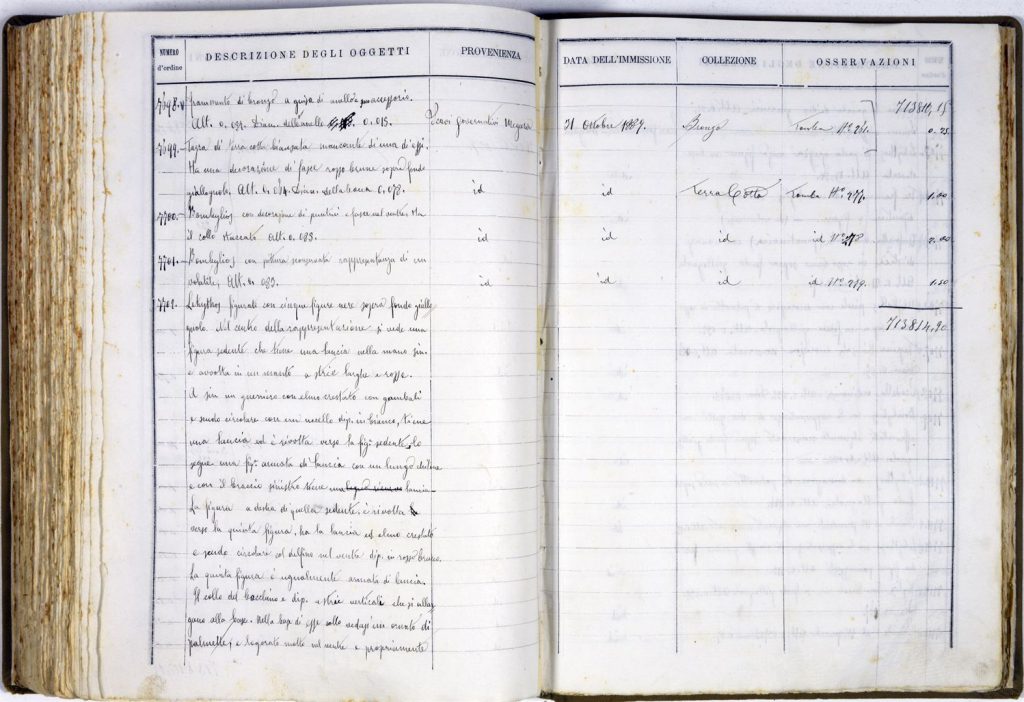 NUMERO d'ordine DESCRIZIONE DEGLI OGGETTI PROVENIENZA DATA DELL'IMMISSIONE COLLEZIONE OSSERVAZIONI
713811,15
7698. di bronzo a guisa di anello accessorio.
Alt. 0.034. Diam. dell'anello 0.015. Scavi Governativi Megara 31 Ottobre 1889. Bronzo Tomba N° 0.25
7699. Tazza di terra cotta biansata mancante di una di essi.
Ha una decorazione di fasce rosso brune sopra fondo
giallognolo. Alt. Diam. della bocca 0.078. id id Terra Cotta Tomba N° 277. 1.00
7700. Bombylios con decorazione di puntini e fasce nel ventre. Ha
il collo staccato Alt. 0.083. id id id id N° 278 2.00
7701. Bombylios con pittura rappresentanza di un
volatile, Alt. 0.083. id id id id N° 279. 1.50
7702. Lekythos figurato con cinque figure nere sopra fondo giallo
gnolo. Nel centro della rappresentazione si vede una
figura sedente che tiene una lancia nella mano sin.
e avvolta in un manto a strie larghe e rosse.
A sin un guerriero con elmo crestato con gambali
e scudo circolare con un uccello dip. in bianco, tiene
una lancia ed è rivolta verso la fig. sedente, lo
segue una fig. armata di lancia con un lungo
e con il braccio sinistro tiene lancia.
La figura a destra di quella sedente, è rivolta
verso la quinta figura, ha la lancia ed elmo crestato
e scudo circolare col delfino nel ventre dip. in rosso bruno.
La quinta figura è ugualmente armata di lancia.
Il collo del vacchino e dip. a strie verticali che si allar
gano alla base. Nella base di esse collo vedasi un ornato di
palmette; è logorato molto nel ventre e propriamente
713814,90